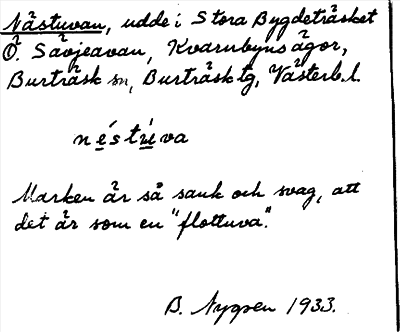 Nästuvan, udde i Stora Bygdeträsket
Ö. Sävjeavan, Kvarnbyns ägor,
Burträsk sn, Burträsk tg, Västerb. l.
néstúva
Marken är så sank och svag, att
det är som en "flottuva".
B. Nygren 1933.